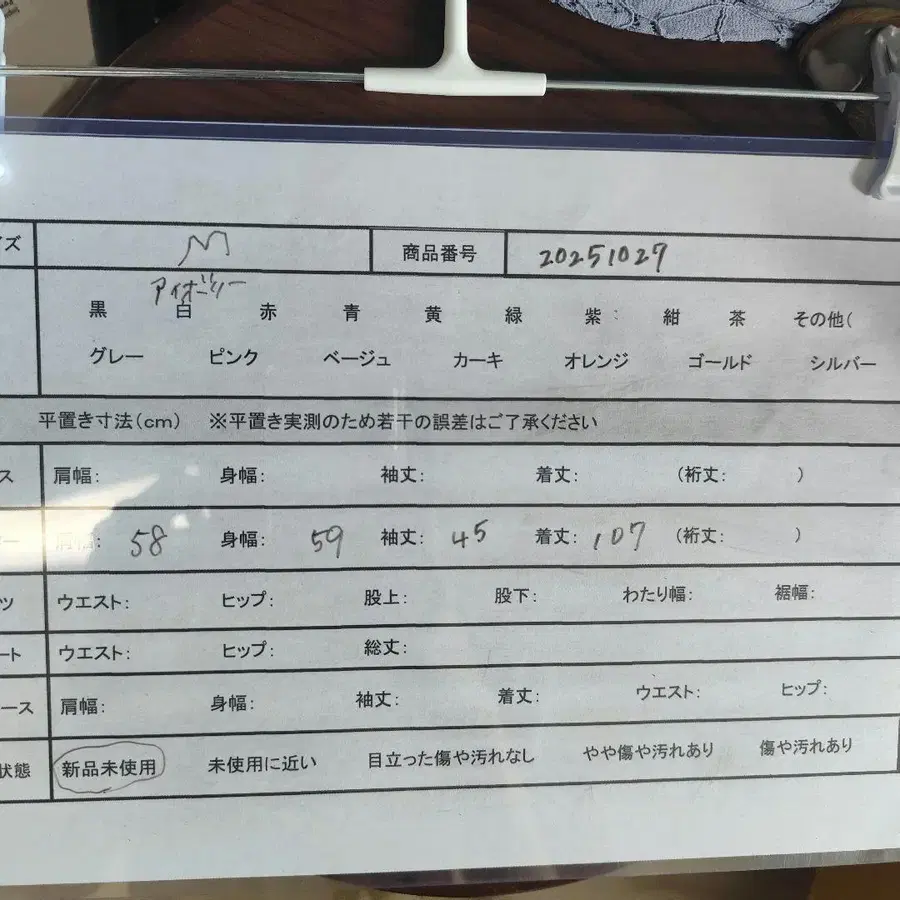 イズ M 商品番号 20251027
アイボーリー
黒 白 赤 青 黄 緑 紫 紺 茶 その他(
グレー ピンク ベージュ カーキ オレンジ ゴールド シルバー
平置き寸法(cm) ※平置き実測のため若干の誤差はご了承ください
ス 肩幅: 身幅: 袖丈: 着丈: (裄丈: )
ー 肩幅: 58 身幅: 59 袖丈: 45 着丈: 107 (裄丈: )
ツ ウエスト: ヒップ: 股上: 股下: わたり幅: 裾幅:
ート ウエスト: ヒップ: 総丈:
ース 肩幅: 身幅: 袖丈: 着丈: ウエスト: ヒップ:
状態 新品未使用 未使用に近い 目立った傷や汚れなし やや傷や汚れあり 傷や汚れあり